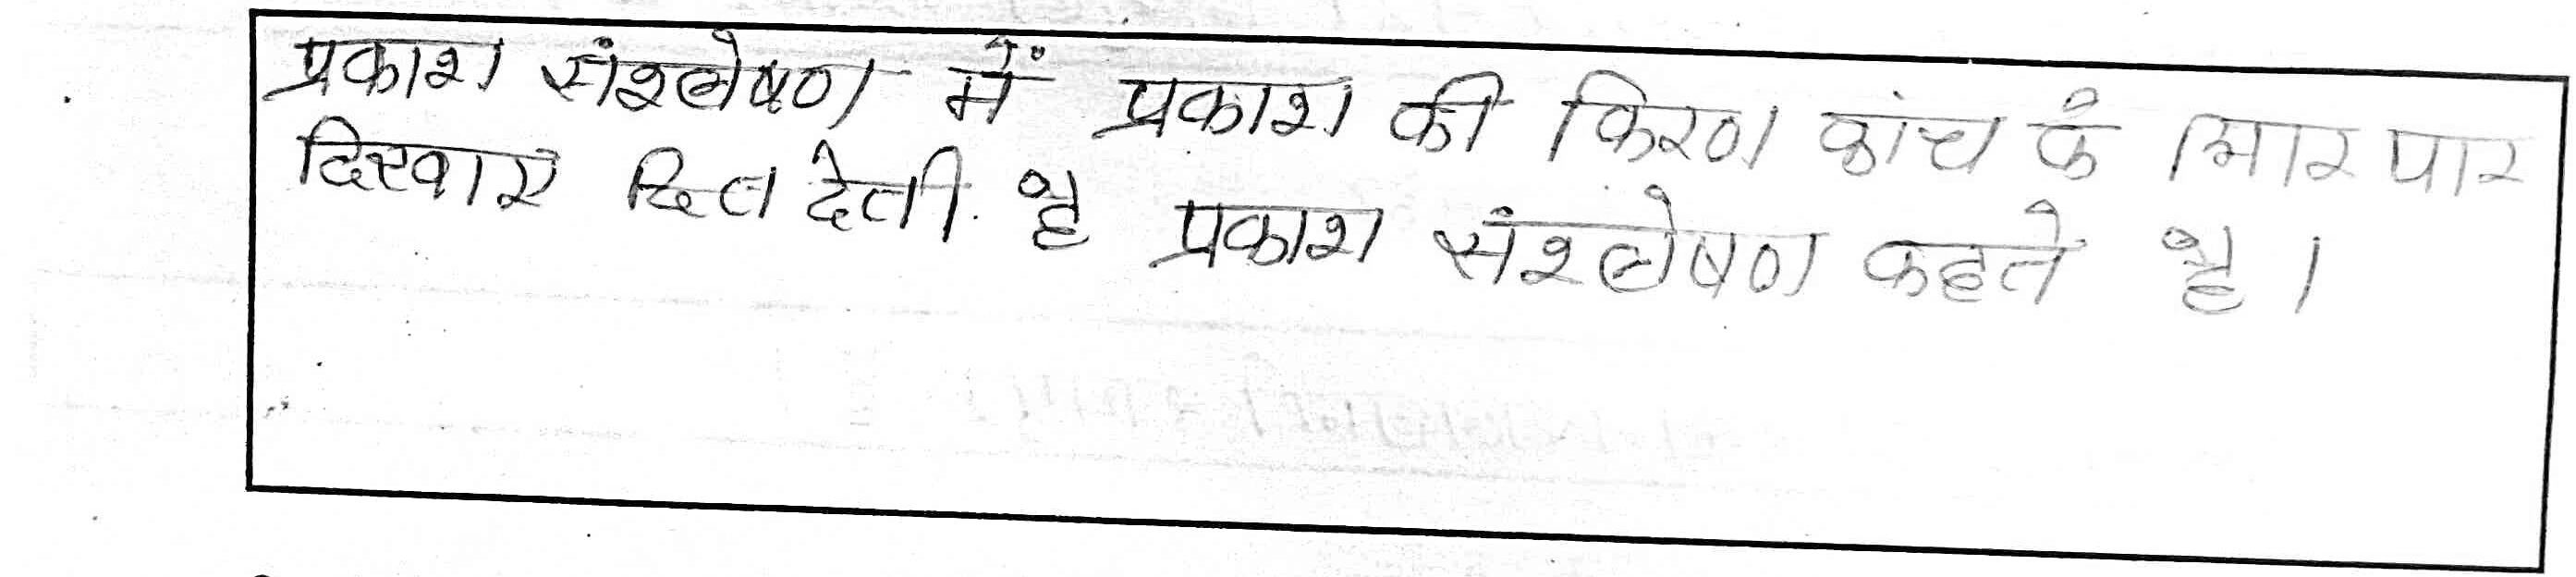 प्रकाश संश्लेषण में प्रकाश की किरण कांच के आर पार
दिखाए देती है प्रकाश संश्लेषण कहते है।